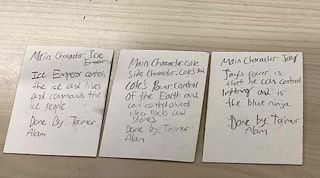 Main Character: Ice
Emperor
Ice Emperor controls
the ice and lives
and commands the
ice people
Done by: Taimur
Alam
Main Character: Cole
Side Character: Cole's And
Cole's Power Control
of the Earth and
can control objects
like Rocks and
stones
Done by: Taimur
Alam
Main Character: Jay
Jay's power is
that he can control
lightning and is
the blue ninja.
Done by: Taimur
Alam